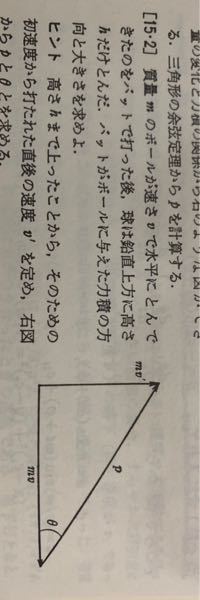 量の変化と力積の関係から右のような図ができ
る. 三角形の余弦定理からpを計算する.
[15・2] 質量mのボールが速さvで水平にとんで
きたのをバットで打った後, 球は鉛直上方に高さ
hだけとんだ. バットがボールに与えた力積の方
向と大きさを求めよ.
ヒント 高さhまで上ったことから, そのための
初速度から打たれた直後の速度v'を定め, 右図
からpとθとを求める.
mv'
p
θ
mv